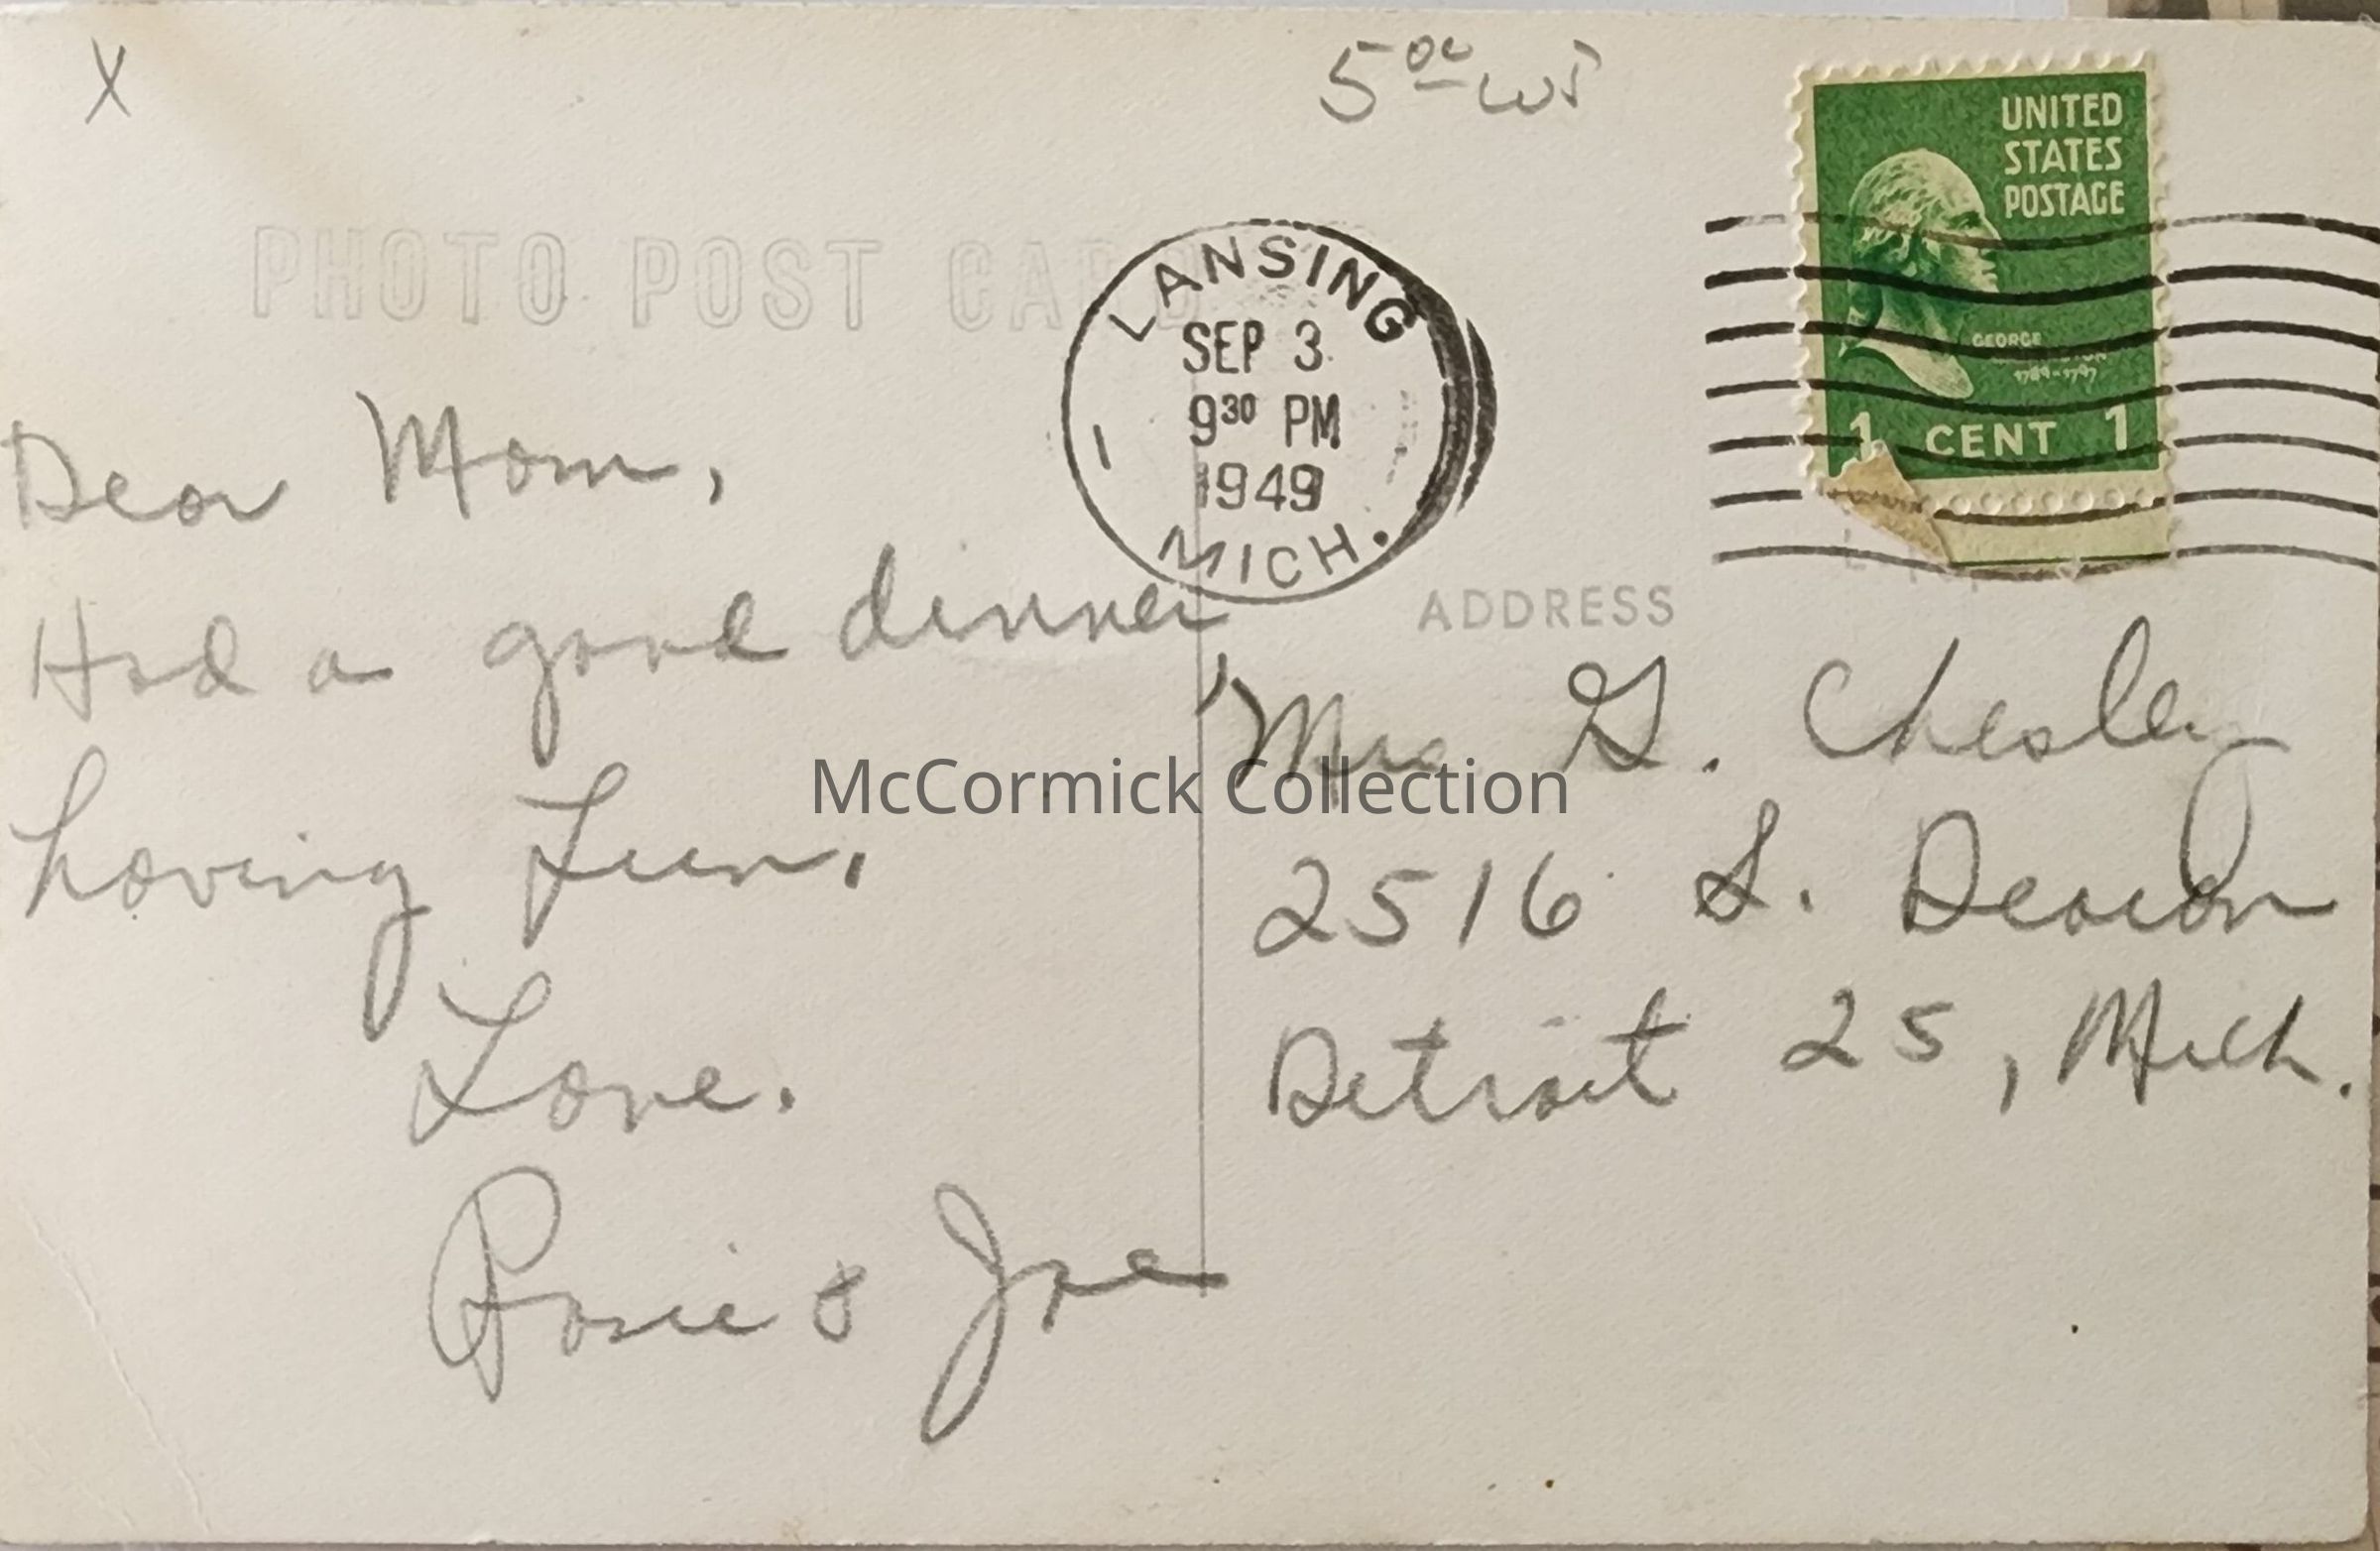 X
5 00 WT
PHOTO POST CARD
LANSING
SEP 3
9 30 PM
1949
1
MICH.
UNITED
STATES
POSTAGE
GEORGE
WASHINGTON
1789-1797
1 CENT 1
Dear Mom,
Had a good dinner
having fun.
Love.
Rosie & Joe
ADDRESS
Mrs G. Chesley
2516 S. Deacon
Detroit 25, Mich.
McCormick Collection